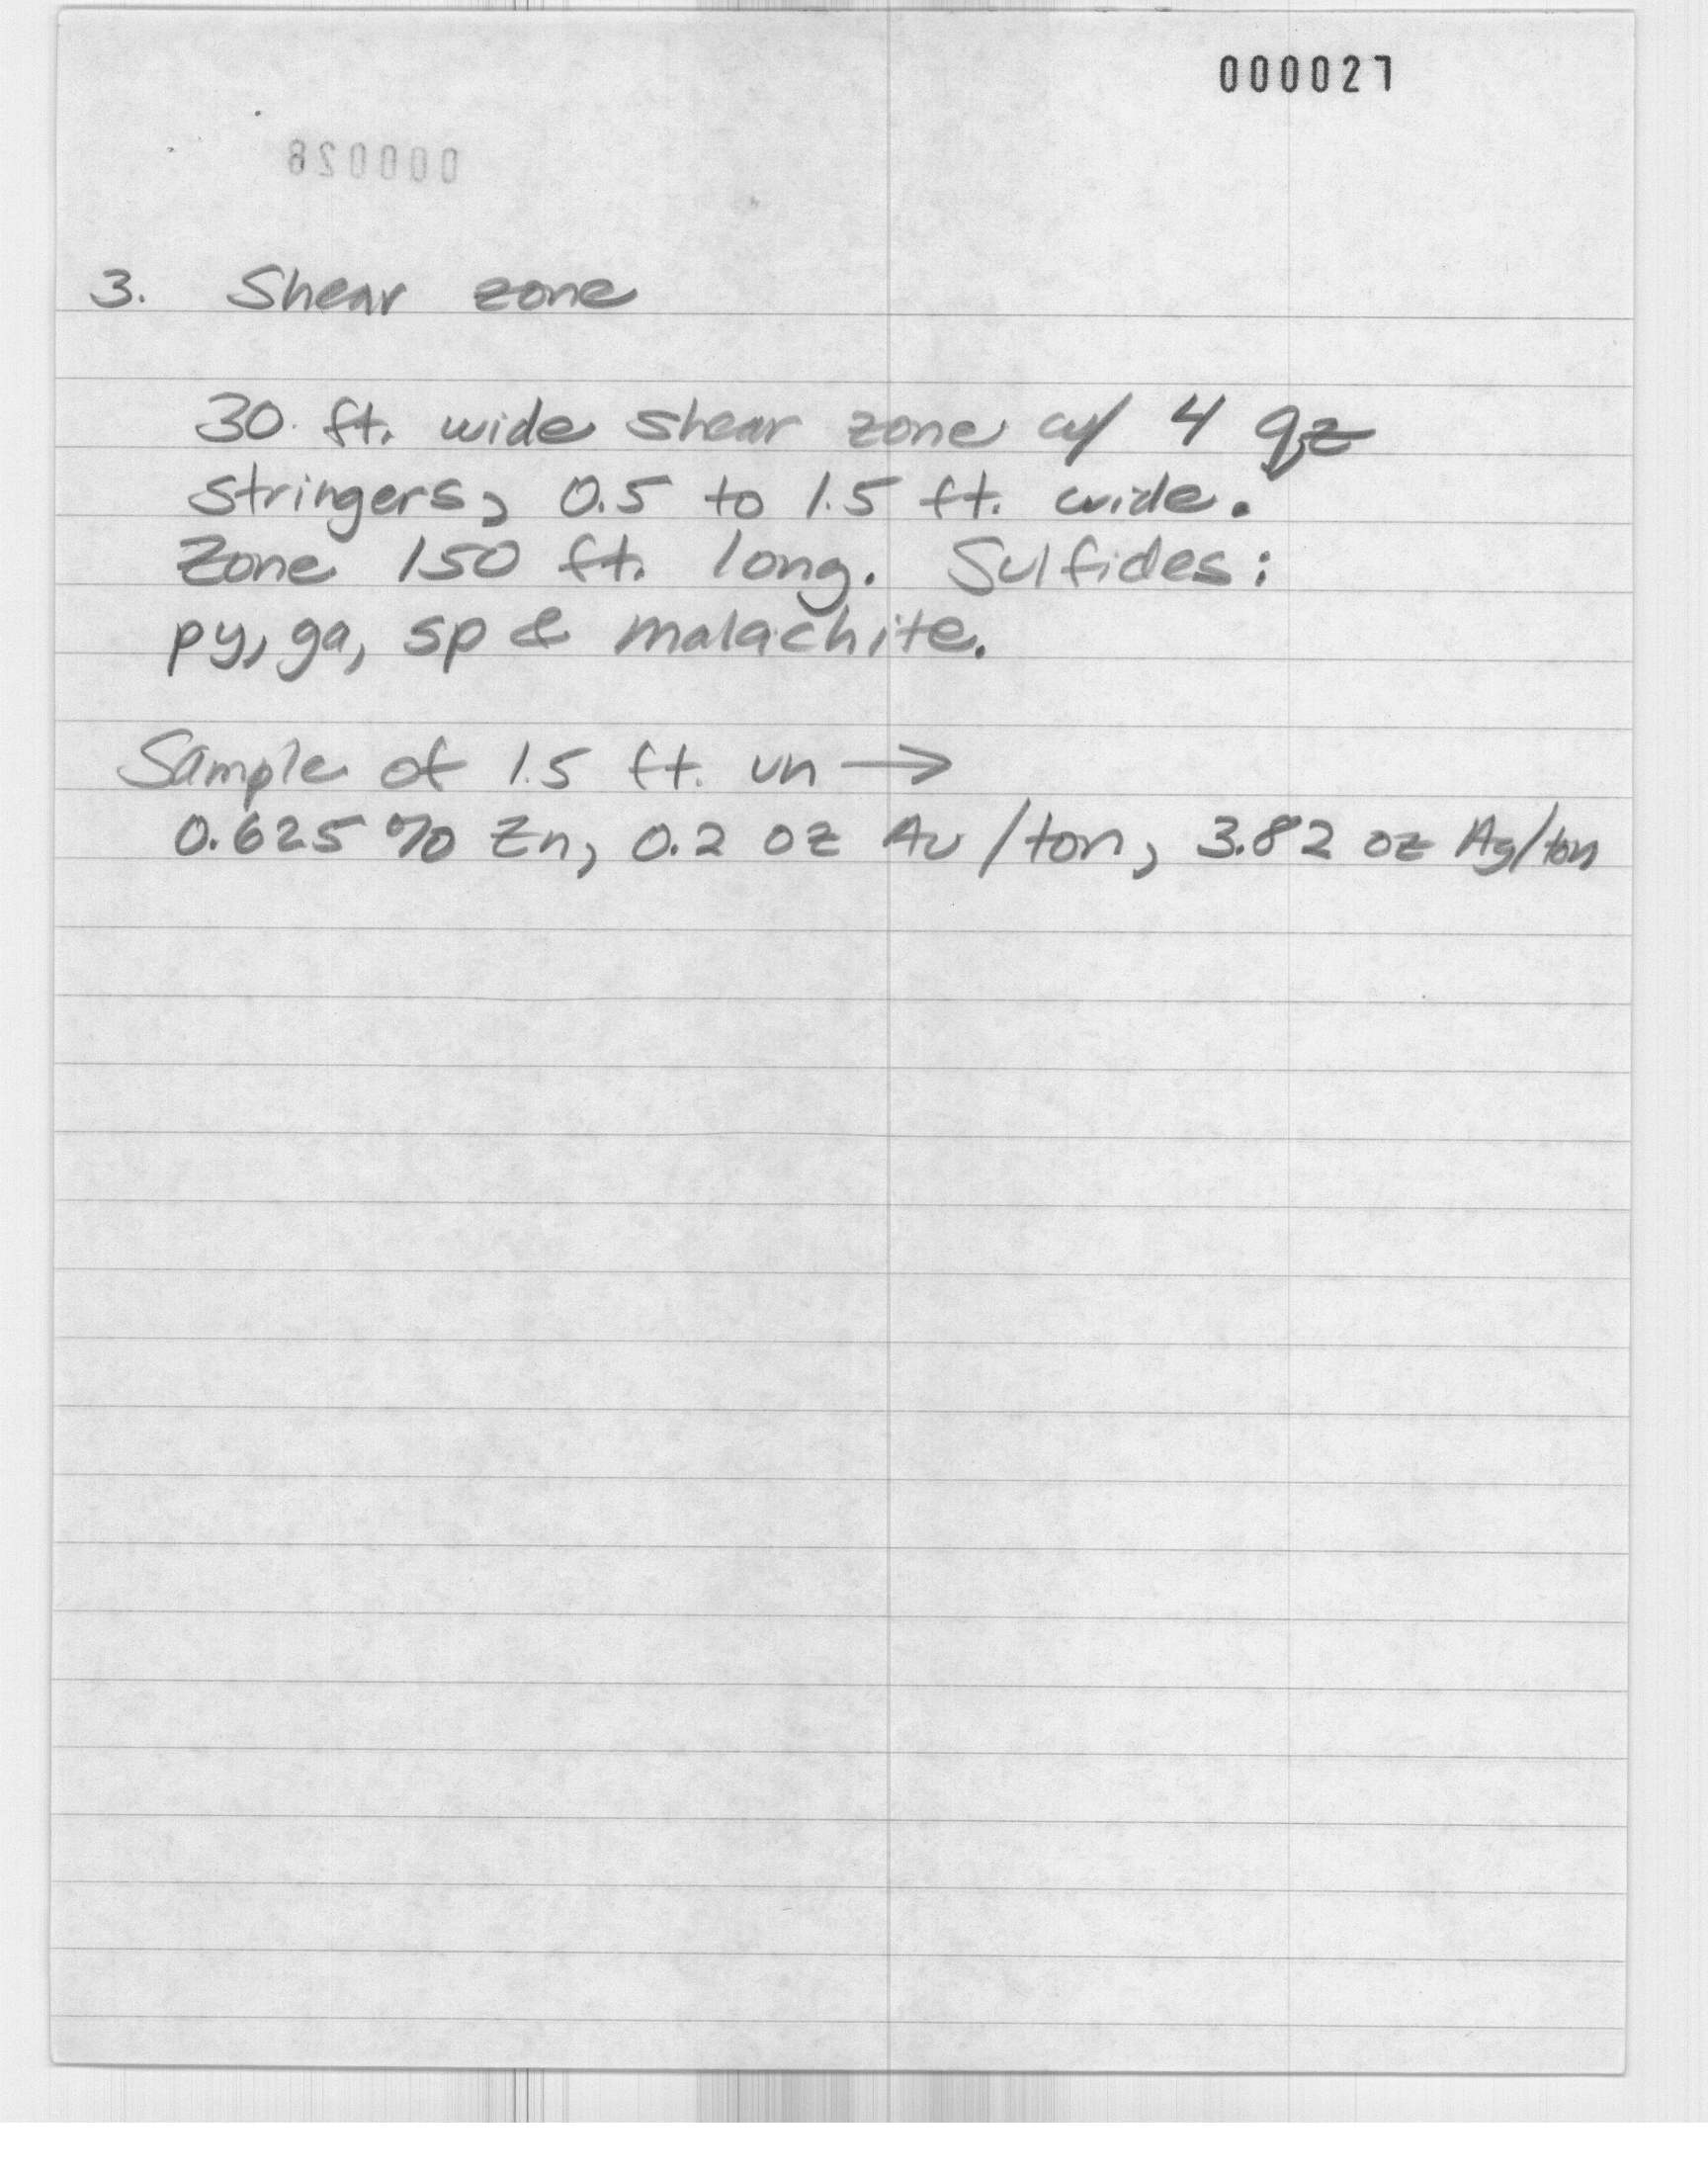 000027
000028
3. Shear zone
30 ft. wide shear zone w/ 4 qz
stringers, 0.5 to 1.5 ft. wide.
Zone 150 ft. long. Sulfides:
py, ga, sp & malachite.
Sample of 1.5 ft. vn →
0.625 % Zn, 0.2 oz Au/ton, 3.82 oz Ag/ton